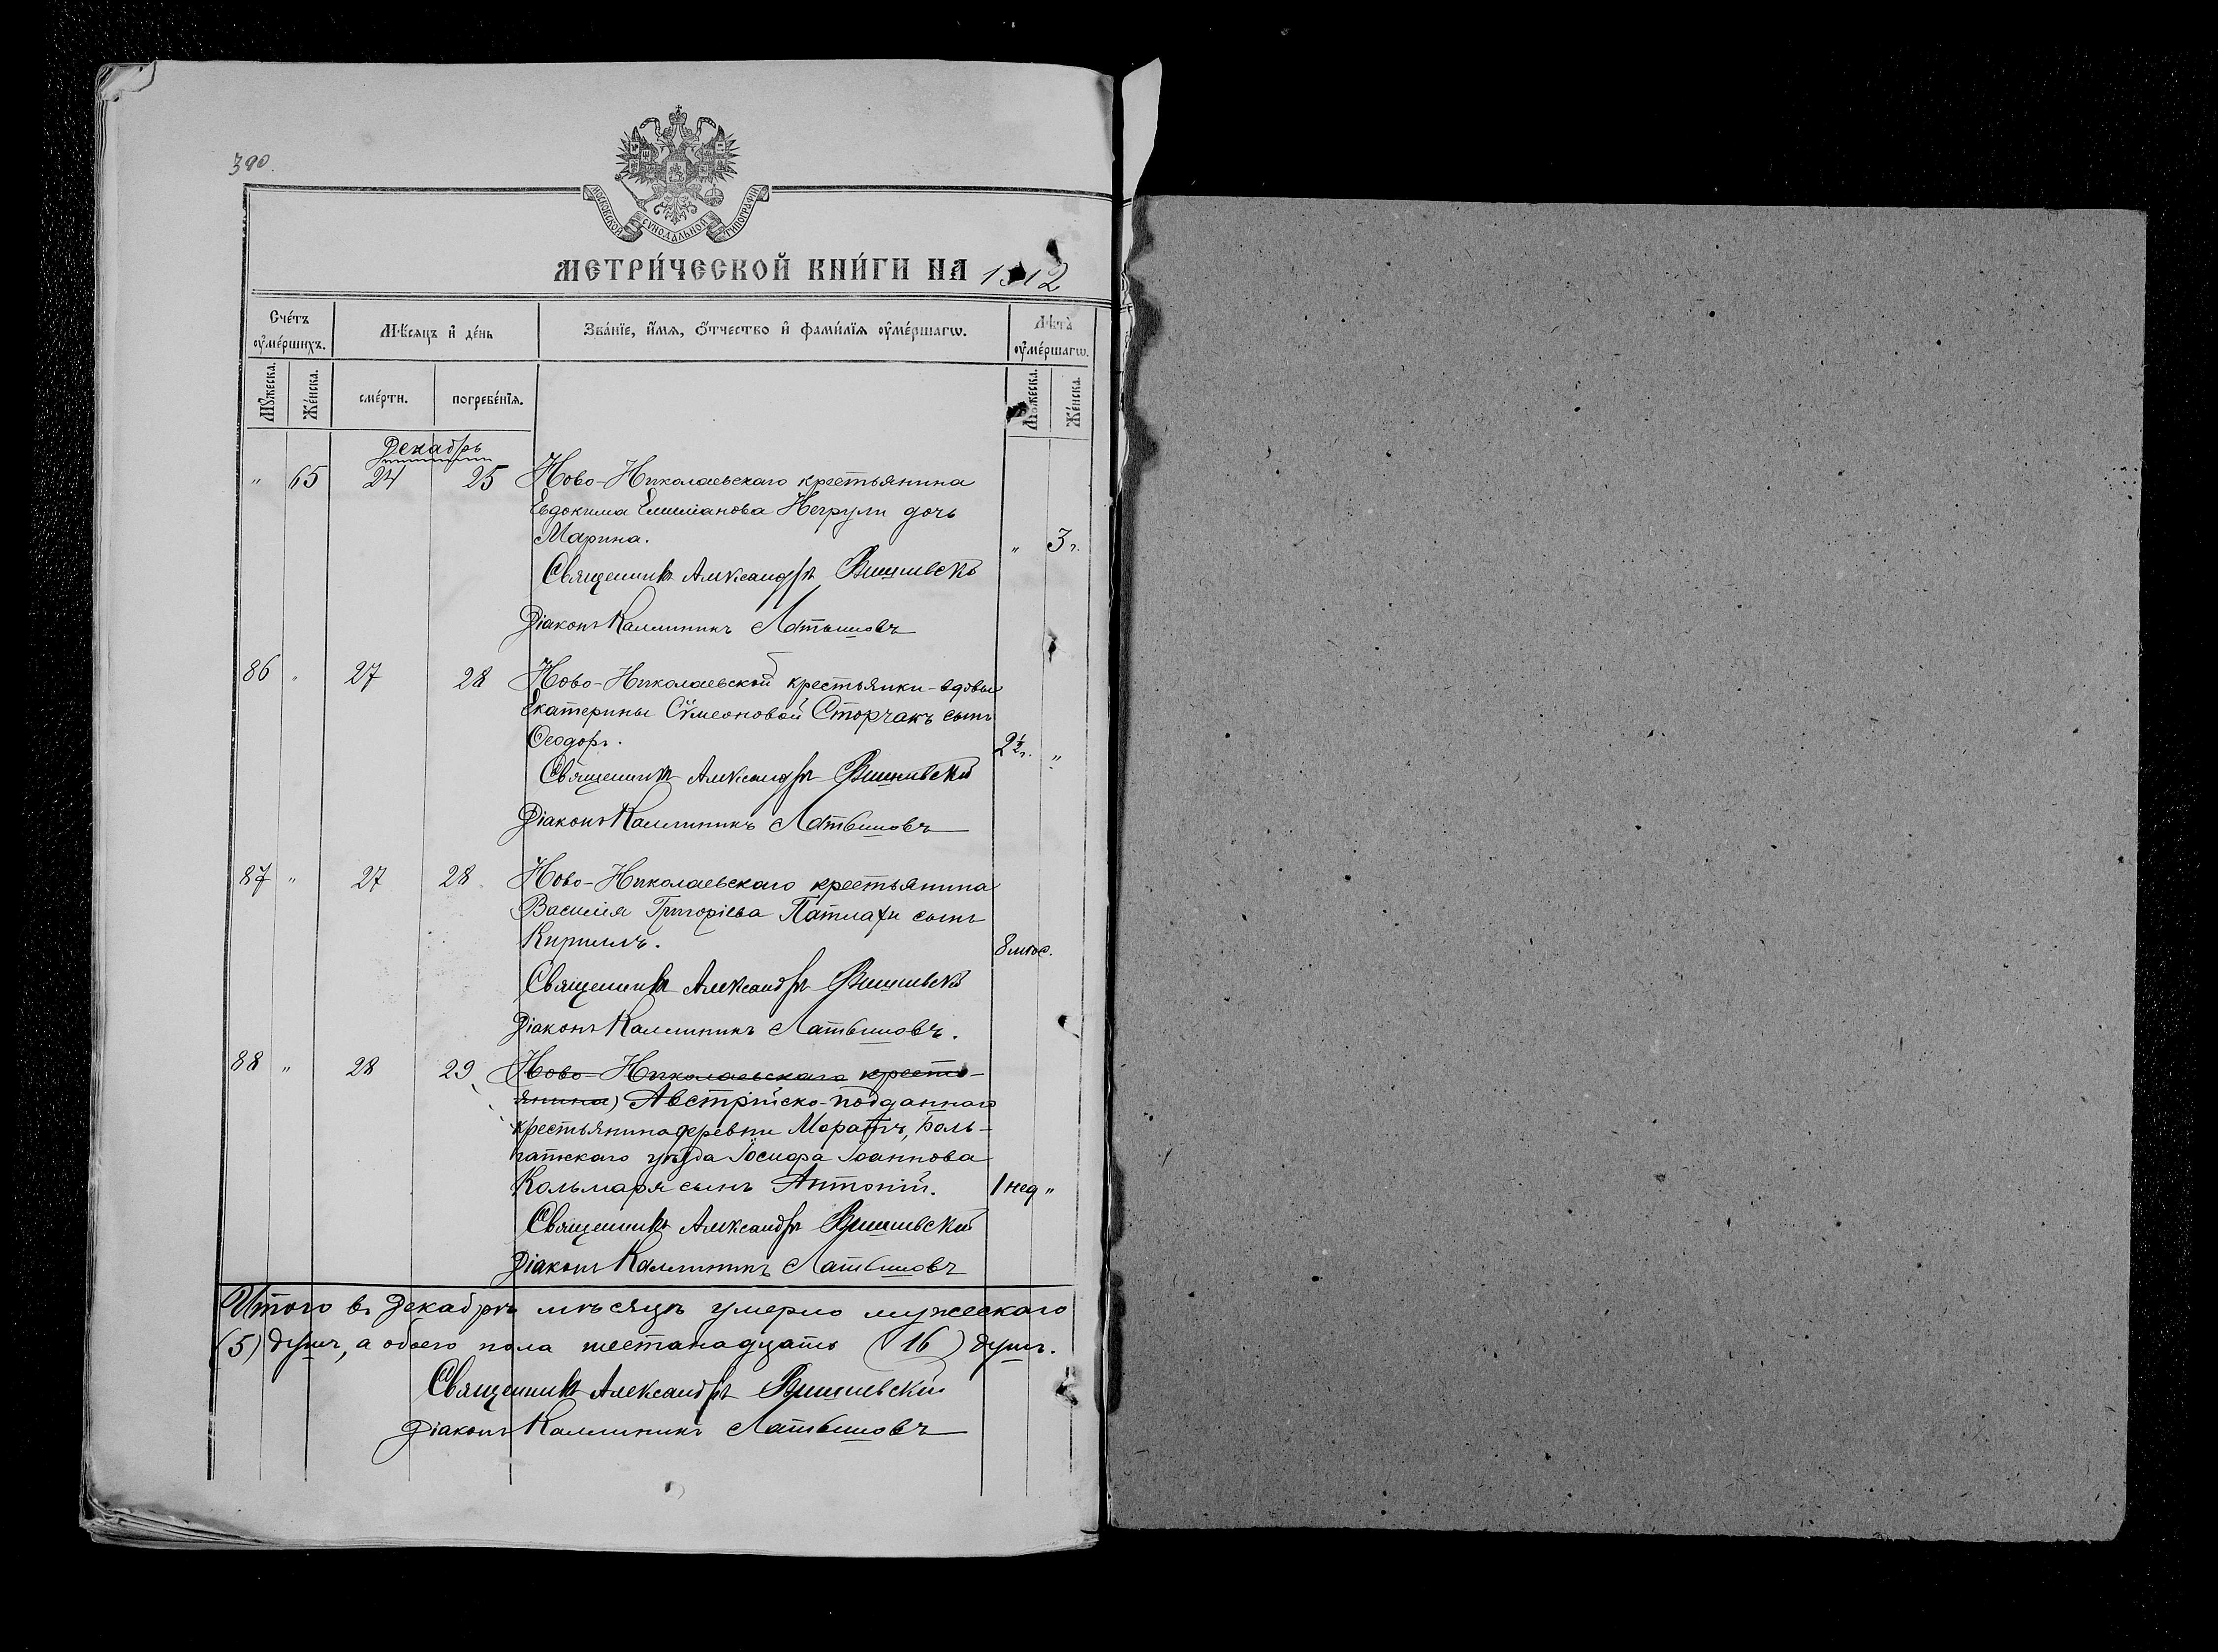 390.
МОСКОВСКОЙ СѴНОДАЛЬНОЙ ТИПОГРАФІИ
МЕТРИ́ЧЕСКОЙ КНИ́ГИ НА 1912
Сче́тъ ᲂу҆ме́ршихъ.
Мѣ́сяцъ и҆ де́нь
Зва́нїе, и҆́мѧ, ѻ҆́тчество и҆ фами́лїѧ ᲂу҆ме́ршагѡ.
Лѣ́та ᲂу҆ме́ршагѡ.
Мꙋ́жеска.
Же́нска.
сме́рти.
погребе́нїѧ.
Мꙋ́жеска.
Же́нска.
Декабрь
" 65 24 25 Ново-Николаевскаго крестьянина
Евдокима Емилианова Негрули дочь
Марина. " 3 г.
Священникъ Александръ Вишневскій
Діаконъ Каллиникъ Латышовъ
86 " 27 28 Ново-Николаевской крестьянки-вдовы
Екатерины Сѵмеоновой Сторчакъ сынъ
Ѳеодоръ. 2½ г. "
Священникъ Александръ Вишневскій
Діаконъ Каллиникъ Латышовъ
87 " 27 28 Ново-Николаевскаго крестьянина
Василія Григоріева Патлахи сынъ
Кириллъ. 8 мѣс.
Священникъ Александръ Вишневскій
Діаконъ Каллиникъ Латышовъ.
88 " 28 29 Ново-Николаевскаго кресть-
янина) Австрійско-подданнаго
крестьянина деревни
уѣзда Іосифа Іоаннова
Кольмаря сынъ Антоній. 1 нед "
Священникъ Александръ Вишневскій
Діаконъ Каллиникъ Латышовъ
Итого въ Декабрѣ мѣсяцѣ умерло мужескаго
(5) душъ, а обоего пола шестанадцать (16) душъ.
Священникъ Александръ Вишневскій
Діаконъ Каллиникъ Латышовъ